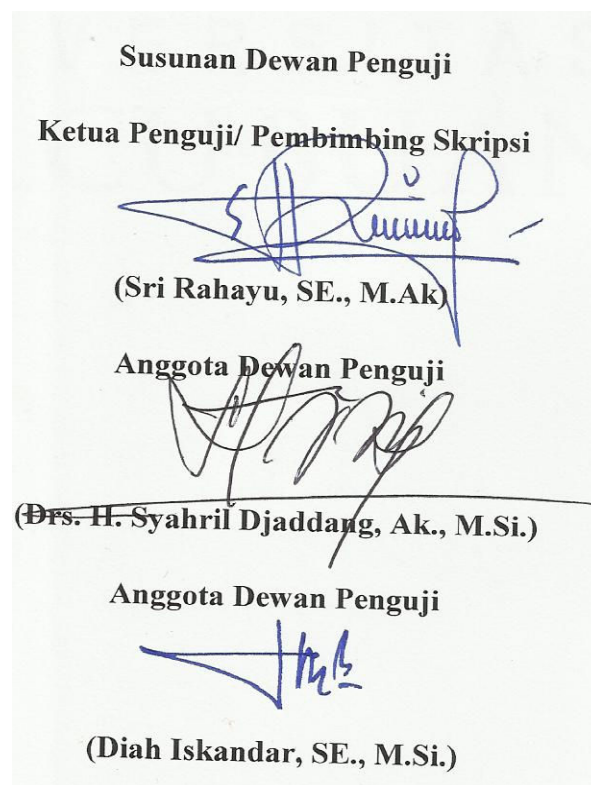 Susunan Dewan Penguji
Ketua Penguji/ Pembimbing Skripsi
(Sri Rahayu, SE., M.Ak)
Anggota Dewan Penguji
(Drs. H. Syahril Djaddang, Ak., M.Si.)
Anggota Dewan Penguji
(Diah Iskandar, SE., M.Si.)